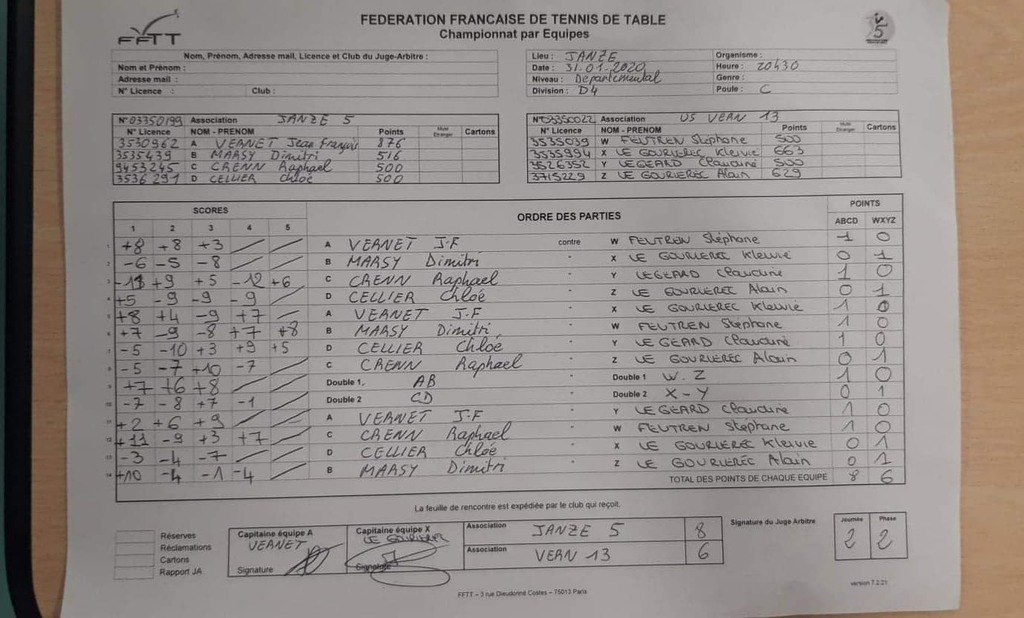 FFTT
FEDERATION FRANCAISE DE TENNIS DE TABLE
Championnat par Equipes
Nom, Prénom, Adresse mail, Licence et Club du Juge-Arbitre :
Nom et Prénom :
Adresse mail :
N° Licence : Club :
Lieu : JANZE Organisme :
Date : 31.01.2020 Heure : 20H30
Niveau : Départemental Genre :
Division : D4 Poule : C
N° 03350199 Association JANZE 5
N° Licence NOM - PRENOM Points Cartons
3530962 A VERNET Jean François 876
3535439 B MARSY Dimitri 516
3453245 C CRENN Raphael 500
3536291 D CELLIER Chloé 500
N° 03350022 Association US VERN 13
N° Licence NOM - PRENOM Points Cartons
3535039 W FEUTREN Stéphane 500
3535994 X LE GOURIEREC 663
3526352 Y LEGEARD Claudine 500
3715229 Z LE GOURIEREC Alain 629
SCORES ORDRE DES PARTIES POINTS
1 2 3 4 5 ABCD WXYZ
1 +8 +8 +3 A VERNET J.F contre W FEUTREN Stéphane 1 0
2 -6 -5 -8 B MARSY Dimitri " X LE GOURIEREC 0 1
3 -11 +9 +5 -12 +6 C CRENN Raphael " Y LEGEARD Claudine 1 0
4 +5 -9 -9 -9 D CELLIER Chloé " Z LE GOURIEREC Alain 0 1
5 +8 +4 -9 +7 A VERNET J.F " X LE GOURIEREC 1 0
6 +7 -9 -8 +7 +8 B MARSY Dimitri " W FEUTREN Stéphane 1 0
7 -5 -10 +3 +9 +5 D CELLIER Chloé " Y LEGEARD Claudine 1 0
8 -5 -7 +10 -7 C CRENN Raphael " Z LE GOURIEREC Alain 0 1
9 +7 +6 +8 Double 1, AB " Double 1 W.Z 1 0
10 -7 -8 +7 -1 Double 2 CD " Double 2 X-Y 0 1
11 +2 +6 +9 A VERNET J.F " Y LEGEARD Claudine 1 0
12 +11 -9 +3 +7 C CRENN Raphael " W FEUTREN Stéphane 1 0
13 -3 -4 -7 D CELLIER Chloé " X LE GOURIEREC 0 1
14 +10 -4 -1 -4 B MARSY Dimitri " Z LE GOURIEREC Alain 0 1
TOTAL DES POINTS DE CHAQUE EQUIPE 8 6
La feuille de rencontre est expédiée par le club qui reçoit.
Réserves
Réclamations
Cartons
Rapport JA
Capitaine équipe A
VERNET
Signature
Capitaine équipe X
LE GOURIEREC
Signature
Association JANZE 5 8
Association VERN 13 6
Signature du Juge Arbitre
Journée Phase
2 2
FFTT – 3 rue Dieudonné Costes – 75013 Paris
version 7.2.21